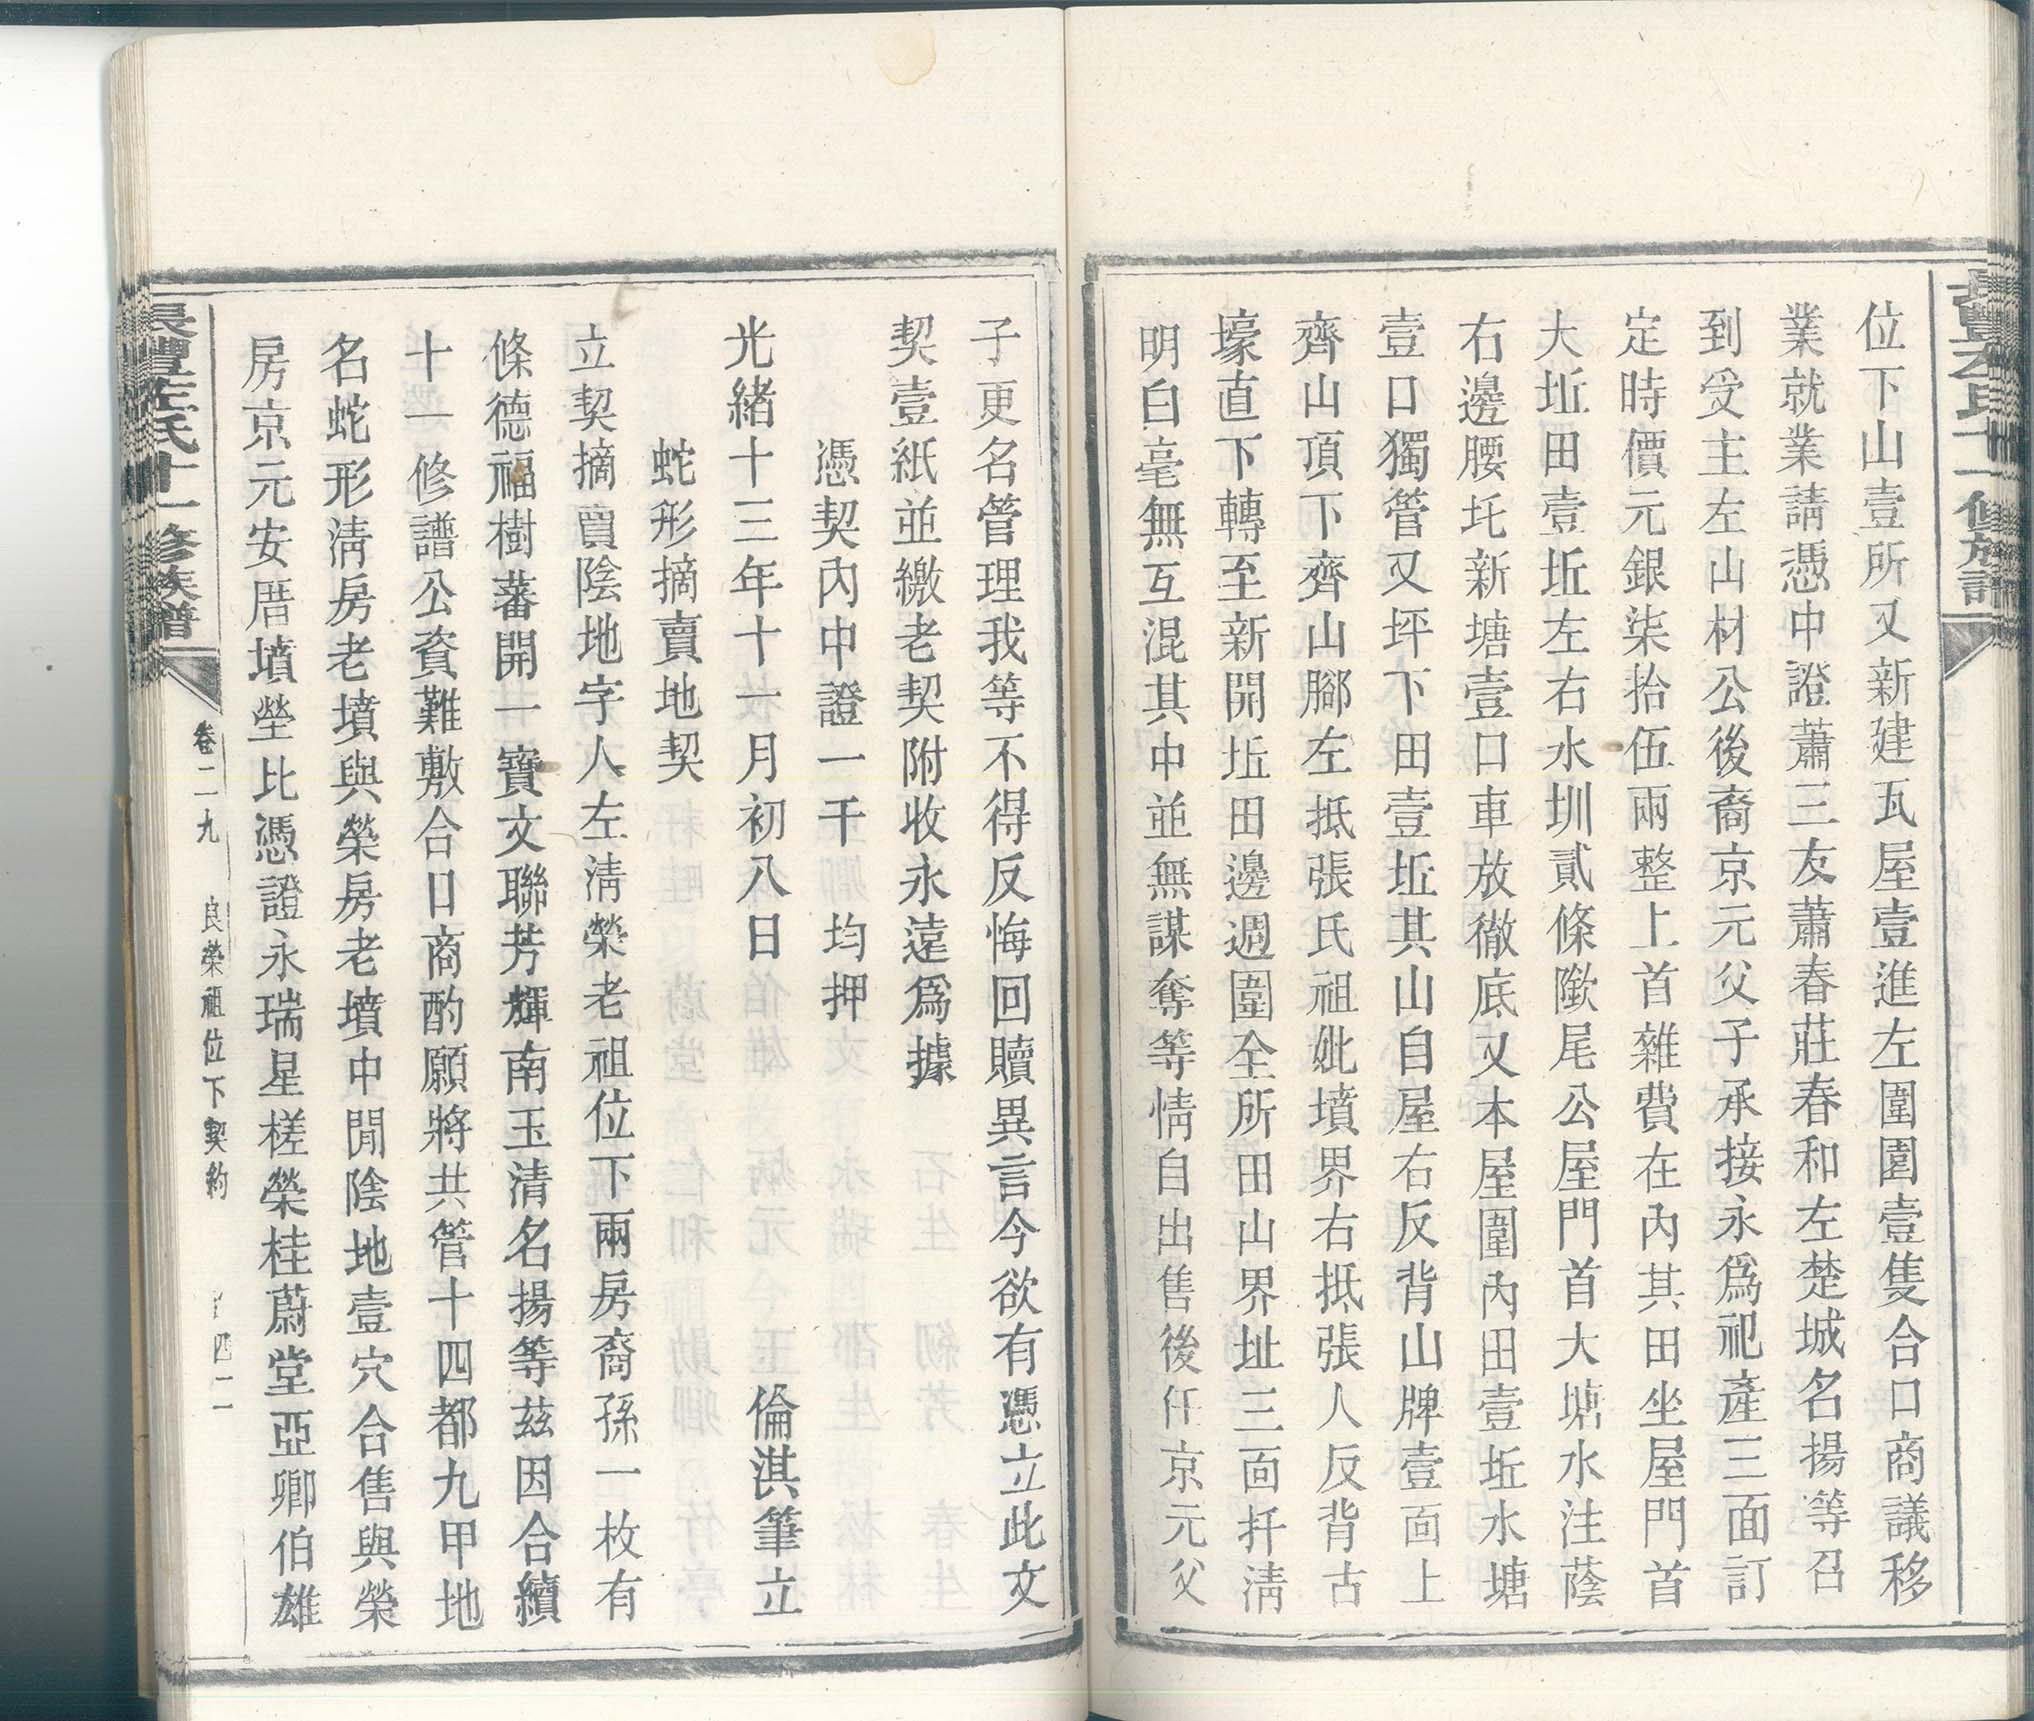 位下山壹所又新建瓦屋壹進左圍圍壹隻合口商議移
業就業請憑中證蕭三友蕭春莊春和左楚城名揚等召
到受主左山材公後裔京元父子承接永爲祀產三面訂
定時價元銀柒拾伍兩整上首雜費在內其田坐屋門首
大坵田壹坵左右水圳貳條歘尾公屋門首大塘水注蔭
右邊腰坵新塘壹口車放徹底又本屋圍內田壹坵水塘
壹口獨管又坪下田壹坵其山自屋右反背山牌壹面上
齊山頂下齊山腳左抵張氏祖妣墳界右抵張人反背古
壕直下轉至新開坵田邊週圍全所田山界址三面扦淸
明白毫無互混其中並無謀奪等情自出售後任京元父
子更名管理我等不得反悔回贖異言今欲有憑立此文
契壹紙並繳老契附收永遠爲據
憑契內中證一千　均押
光緒十三年十一月初八日　倫淇筆立
蛇形摘賣地契
立契摘買陰地字人左淸榮老祖位下兩房裔孫一枚有
條德福樹蕃開一寶文聯芳輝南玉清名揚等茲因合續
十一修譜公資難敷合日商酌願將共管十四都九甲地
名蛇形淸房老墳與榮房老墳中間陰地壹穴合售與榮
房京元安厝墳塋比憑證永瑞星槎榮桂蔚堂亞卿伯雄
長豐左氏十一修族譜
卷二九　良榮祖位下契約
四一
長豐左氏十一修族譜